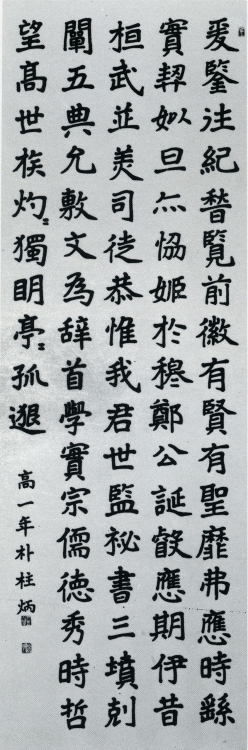 爰鑒往紀稽覽前徽有賢有聖靡弗應時繇
實契姒旦亦恊姬於穆鄭公誕叡應期伊昔
桓武並美司徒恭惟我君世監祕書三墳剋
闡五典允敷文為辞首學實宗儒徳秀時哲
望髙世族灼〻獨明亭〻孤邈
高一年朴柱炳